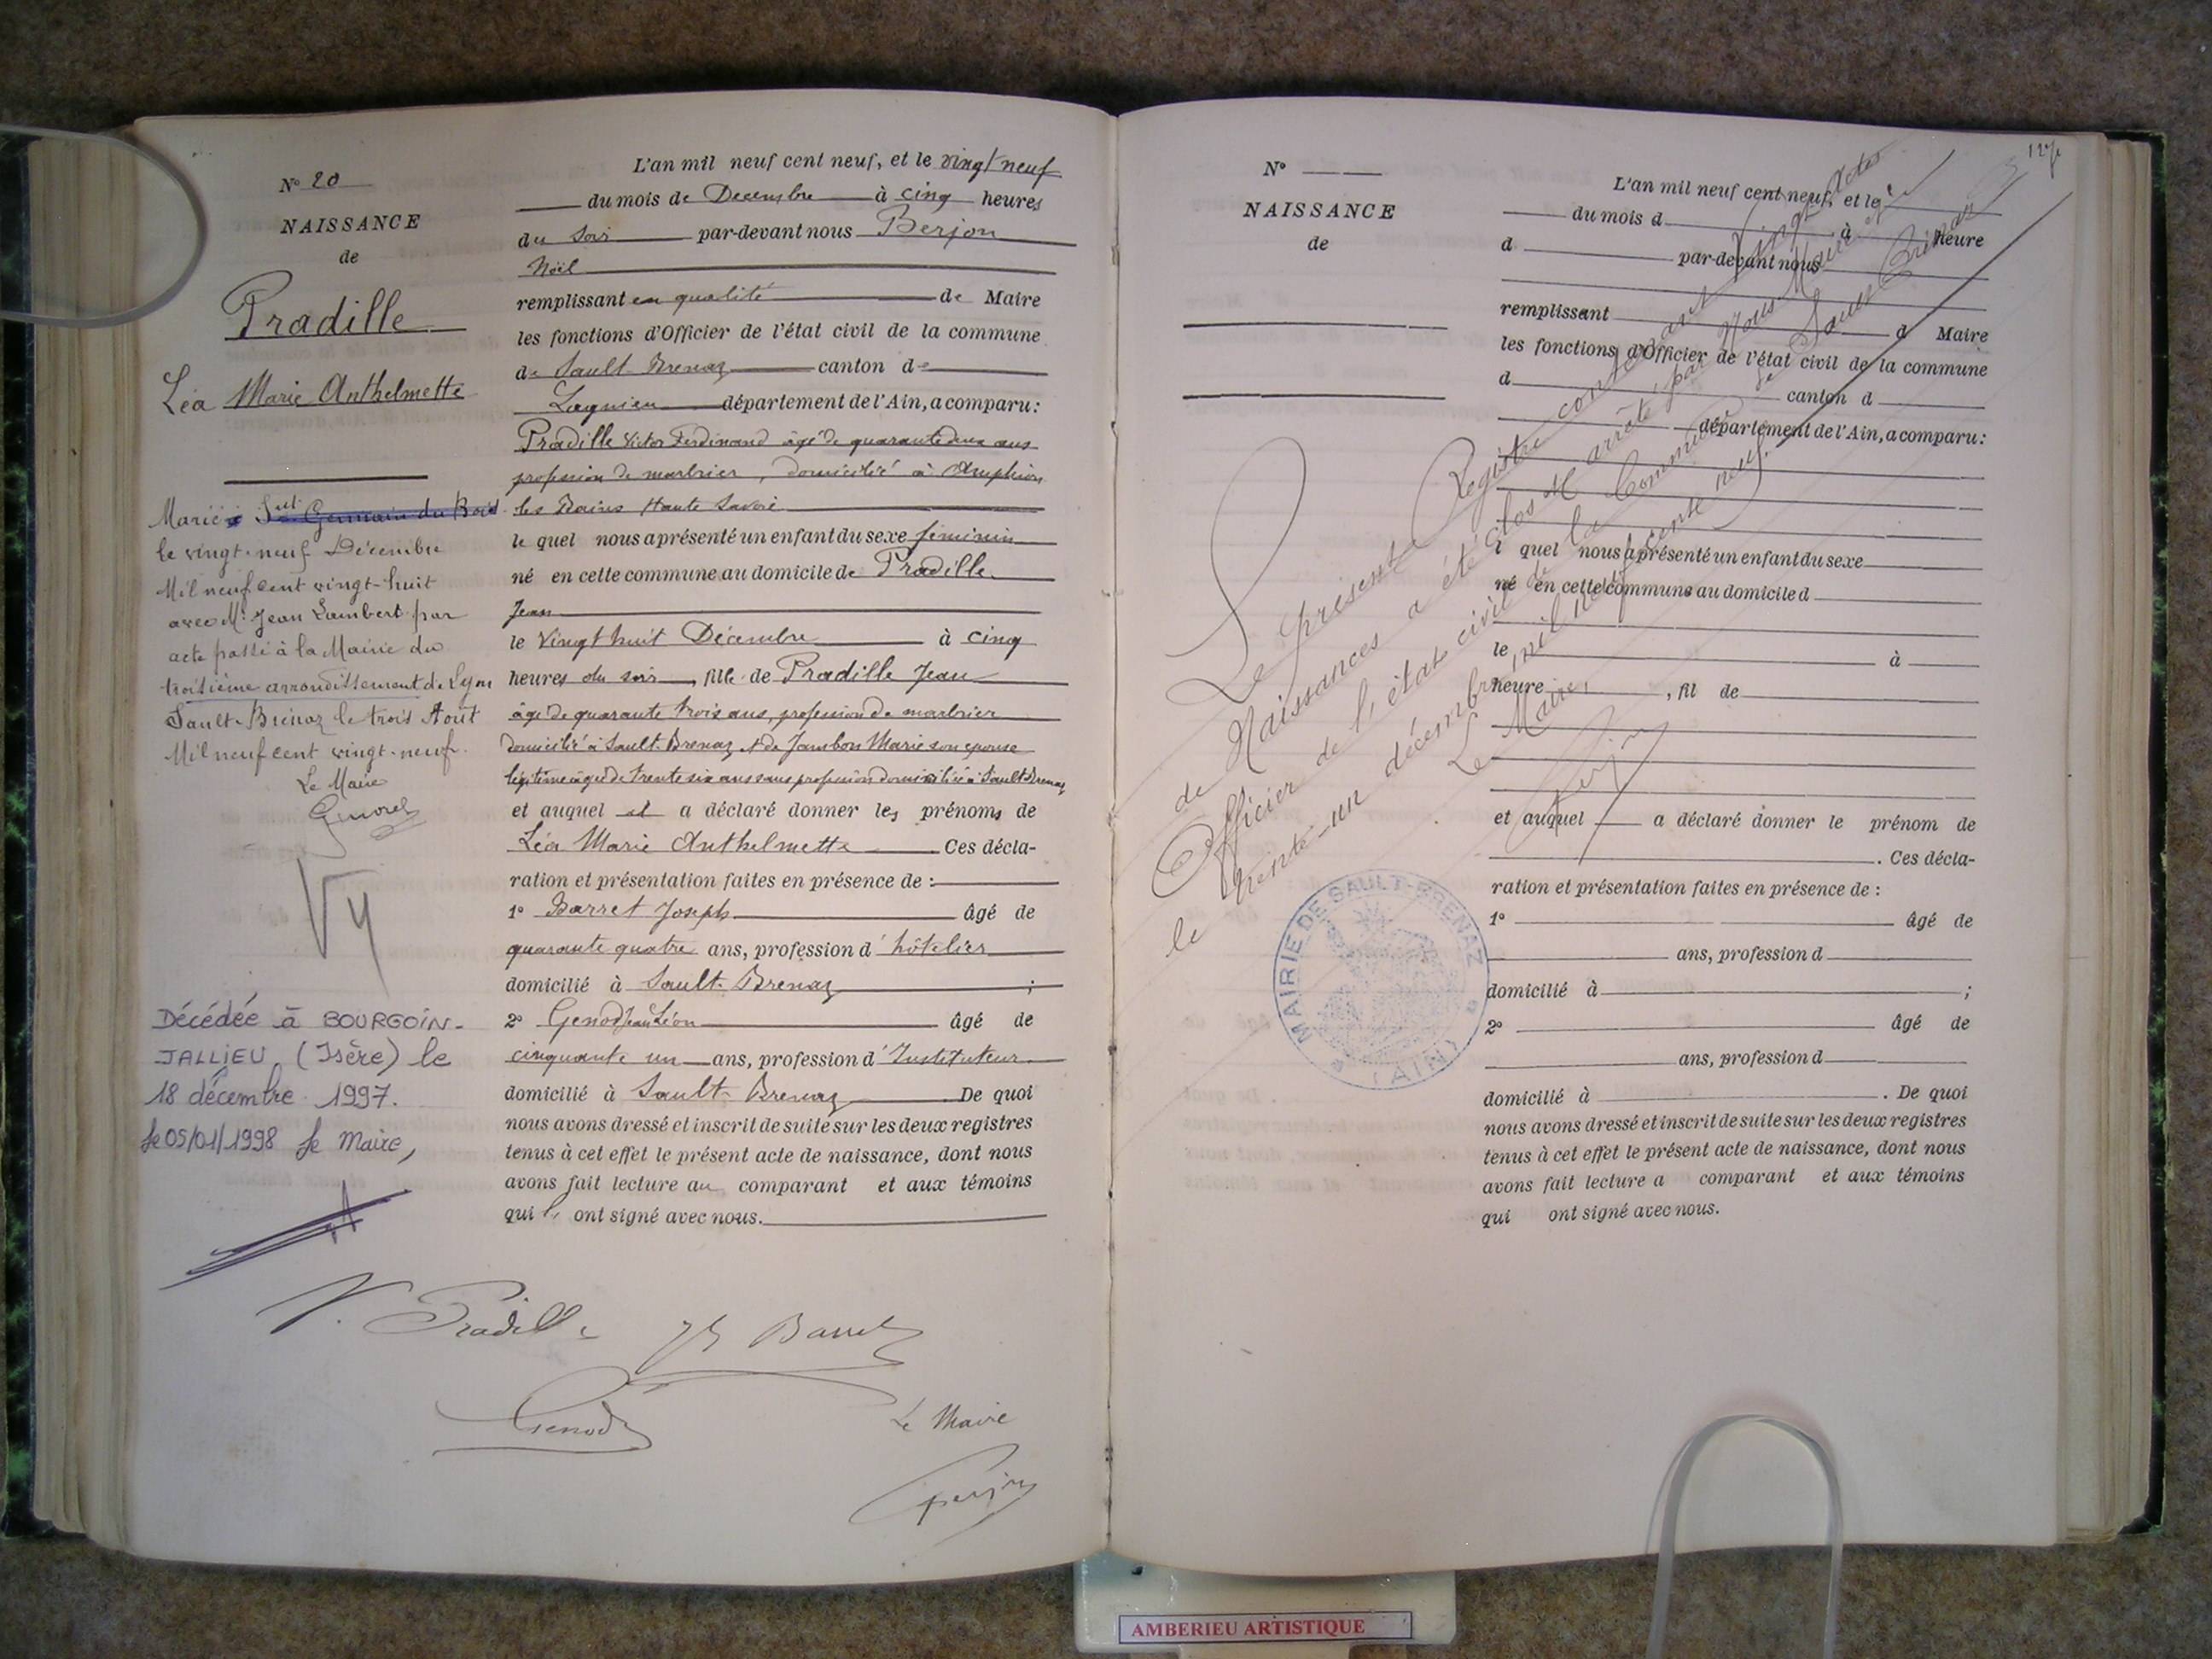 N° 20
NAISSANCE
de
Pradille
Léa Marie Anthelmette
Mariée
le vingt-neuf Décembre
Mil neuf cent vingt-huit
avec Mr Jean Lambert par
acte passé à la Mairie du
troisième arrondissement de Lyon
Sault-Brénaz le trois Août
Mil neuf cent vingt-neuf.
Le Maire
Décédée à BOURGOIN-
JALLIEU (Isère) le
18 décembre 1997.
le 05/01/1998 Le Maire,
L'an mil neuf cent neuf, et le vingt neuf
du mois de Decembre à cinq heures
du soir par-devant nous Berjon
Noël
remplissant en qualité de Maire
les fonctions d'Officier de l'état civil de la commune
de Sault-Brenaz canton de
Lagnieu département de l'Ain, a comparu:
Pradille Victor Ferdinand âgé de quarante deux ans
profession de marbrier, domicilié à Amphion
les Bains Haute Savoie
le quel nous a présenté un enfant du sexe féminin
né en cette commune au domicile de Pradille
Jean
le Vingt huit Décembre à cinq
heures du soir, fille de Pradille Jean
âgé de quarante trois ans, profession de marbrier
domicilié à Sault-Brenaz & de Jambon Marie son épouse
légitime âgée de trente six ans sans profession domiciliée à Sault-Brenaz
et auquel il a déclaré donner les prénoms de
Léa Marie Anthelmette Ces décla-
ration et présentation faites en présence de :
1° Barret Joseph âgé de
quarante quatre ans, profession d'hôtelier
domicilié à Sault-Brenaz ;
2° Genod Jean Léon âgé de
cinquante un ans, profession d'Instituteur
domicilié à Sault-Brenaz De quoi
nous avons dressé et inscrit de suite sur les deux registres
tenus à cet effet le présent acte de naissance, dont nous
avons fait lecture au comparant et aux témoins
qui ont signé avec nous.
V. Pradille
Jh Barret
Genod
Le Maire
Berjon
N°
NAISSANCE
de
L'an mil neuf cent neuf, et le
du mois d à heure
d par-devant nous
remplissant d Maire
les fonctions d'Officier de l'état civil de la commune
d canton d
département de l'Ain, a comparu:
l quel nous a présenté un enfant du sexe
né en cette commune au domicile d
le à
heure , fil de
et auquel a déclaré donner le prénom de
. Ces décla-
ration et présentation faites en présence de :
1° âgé de
ans, profession d
domicilié à ;
2° âgé de
ans, profession d
domicilié à . De quoi
nous avons dressé et inscrit de suite sur les deux registres
tenus à cet effet le présent acte de naissance, dont nous
avons fait lecture a comparant et aux témoins
qui ont signé avec nous.
Le présent Registre contenant Vingt Actes
de Naissances a été clos et arrêté par Nous Maire et
Officier de l'état civil de la Commune de Sault-Brénaz
le trente-un décembre mil neuf cent neuf.
Le Maire,
Berjon
MAIRIE DE SAULT-BRENAZ
(AIN)
AMBERIEU ARTISTIQUE